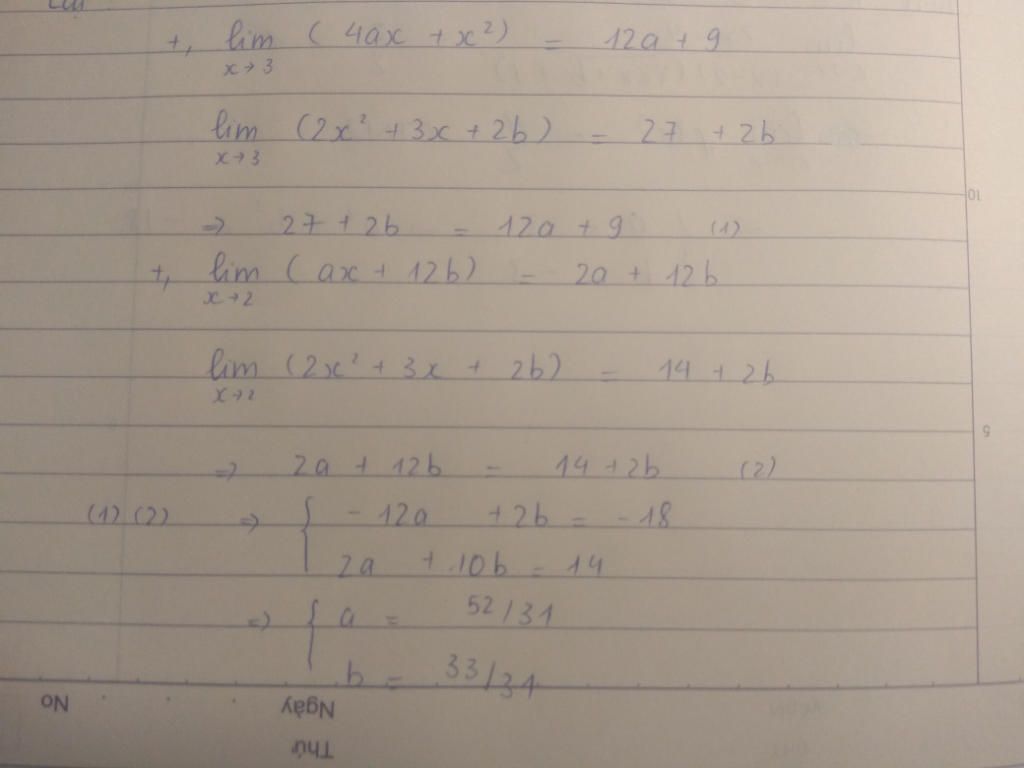 +, lim (4ax + x²) = 12a + 9
x→3
lim (2x² + 3x + 2b) = 27 + 2b
x→3
10
=> 27 + 2b = 12a + 9 (1)
+, lim (ax + 12b) = 2a + 12b
x→2
lim (2x² + 3x + 2b) = 14 + 2b
x→2
5
=> 2a + 12b = 14 + 2b (2)
(1) (2) => { - 12a + 2b = - 18
2a + 10b = 14
=> { a = 52/31
b = 33/31
No Ngày
Thứ